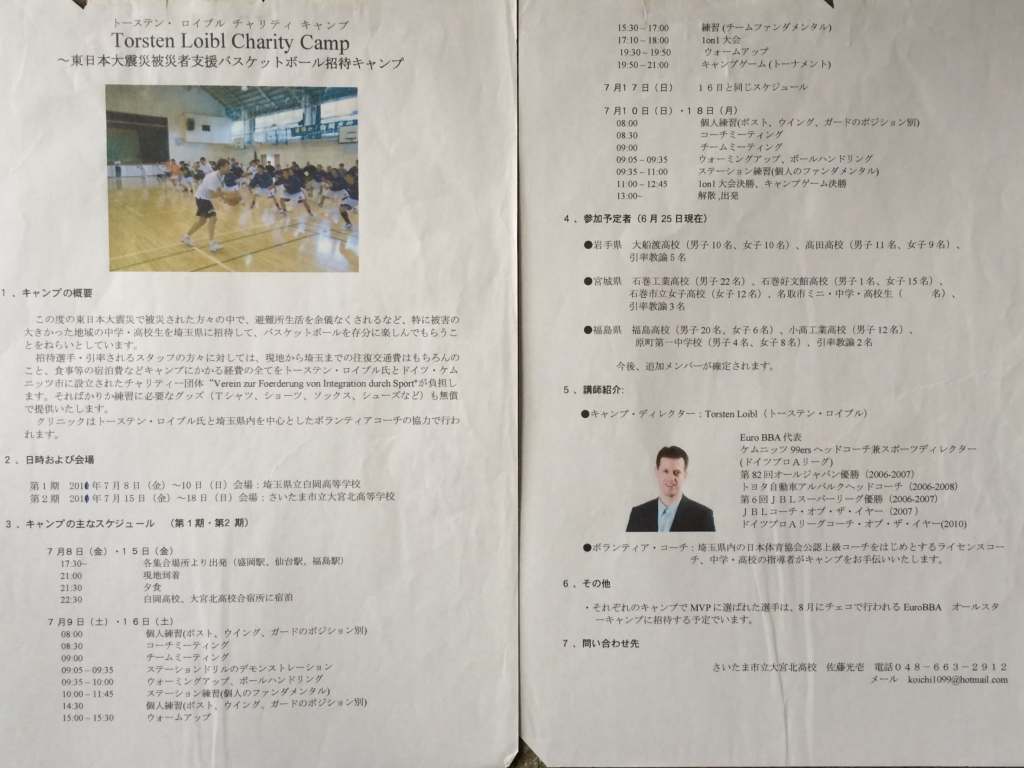 トーステン・ ロイブル チャリティ キャンプ
Torsten Loibl Charity Camp
～東日本大震災被災者支援バスケットボール招待キャンプ
1 、キャンプの概要
この度の東日本大震災で被災された方々の中で、避難所生活を余儀なくされるなど、特に被害の
大きかった地域の中学・高校生を埼玉県に招待して、バスケットボールを存分に楽しんでもらうこ
とをねらいとしています。
招待選手・引率されるスタッフの方々に対しては、現地から埼玉までの往復交通費はもちろんの
こと、食事等の宿泊費などキャンプにかかる経費の全てをトーステン・ロイブル氏とドイツ・ケム
ニッツ市に設立されたチャリティー団体 “Verein zur Foerderung von Integration durch Sport”が負担し
ます。そればかりか練習に必要なグッズ（Tシャツ、ショーツ、ソックス、シューズなど）も無償
で提供いたします。
クリニックはトーステン・ロイブル氏と埼玉県内を中心としたボランティアコーチの協力で行わ
れます。
2 、日時および会場
第1期 年7月8日（金）～10日（日）会場：埼玉県立白岡高等学校
第2期 年7月15日（金）～18日（日）会場：さいたま市立大宮北高等学校
3 、キャンプの主なスケジュール （第1期・第2 期）
7月8日（金）・15日（金）
17:30~ 各集合場所より出発（盛岡駅、仙台駅、福島駅）
21:00 現地到着
21:30 夕食
22:30 白岡高校、大宮北高校合宿所に宿泊
7月9日（土）・16日（土）
08:00 個人練習(ポスト、ウイング、ガードのポジション別)
08:30 コーチミーティング
09:00 チームミーティング
09:05 – 09:35 ステーションドリルのデモンストレーション
09:35 – 10:00 ウォーミングアップ、ボールハンドリング
10:00 – 11:45 ステーション練習(個人のファンダメンタル)
14:30 個人練習(ポスト、ウイング、ガードのポジション別)
15:00 – 15:30 ウォームアップ
15:30 – 17:00 練習 (チームファンダメンタル)
17:10 – 18:00 1on1 大会
19:30 – 19:50 ウォームアップ
19:50 – 21:00 キャンプゲーム (トーナメント)
7月17日（日） 16日と同じスケジュール
7月10日（日）・18日（月）
08:00 個人練習(ポスト、ウイング、ガードのポジション別)
08:30 コーチミーティング
09:00 チームミーティング
09:05 – 09:35 ウォーミングアップ、ボールハンドリング
09:35 – 11:00 ステーション練習(個人のファンダメンタル)
11:00 – 12:45 1on1 大会決勝、キャンプゲーム決勝
13:00~ 解散 ,出発
4 、参加予定者（6月25日現在）
●岩手県 大船渡高校（男子10名、女子10名）、高田高校（男子11名、女子9名）、
引率教諭5名
●宮城県 石巻工業高校（男子22名）、石巻好文館高校（男子1名、女子15名）、
石巻市立女子高校（女子12名）、名取市ミニ・中学・高校生（ 名）、
引率教諭3名
●福島県 福島高校（男子20名、女子6名）、小高工業高校（男子12名）、
原町第一中学校（男子4名、女子8名）、引率教諭2名
今後、追加メンバーが確定されます。
5 、講師紹介:
●キャンプ・ディレクター：Torsten Loibl（トーステン・ロイブル）
Euro BBA 代表
ケムニッツ 99ers ヘッドコーチ兼スポーツディレクター
(ドイツプロAリーグ)
第82回オールジャパン優勝（2006-2007）
トヨタ自動車アルバルクヘッドコーチ（2006-2008）
第6回JBLスーパーリーグ優勝（2006-2007）
JBLコーチ・オブ・ザ・イヤー（2007 ）
ドイツプロAリーグコーチ・オブ・ザ・イヤー(2010)
●ボランティア・コーチ：埼玉県内の日本体育協会公認上級コーチをはじめとするライセンスコー
チ、中学・高校の指導者がキャンプをお手伝いいたします。
6 、その他
・それぞれのキャンプでMVPに選ばれた選手は、8月にチェコで行われるEuroBBA オールスタ
ーキャンプに招待する予定でいます。
7 、問い合わせ先
さいたま市立大宮北高校 佐藤光壱 電話048－663－2912
メール koichi1099@hotmail.com